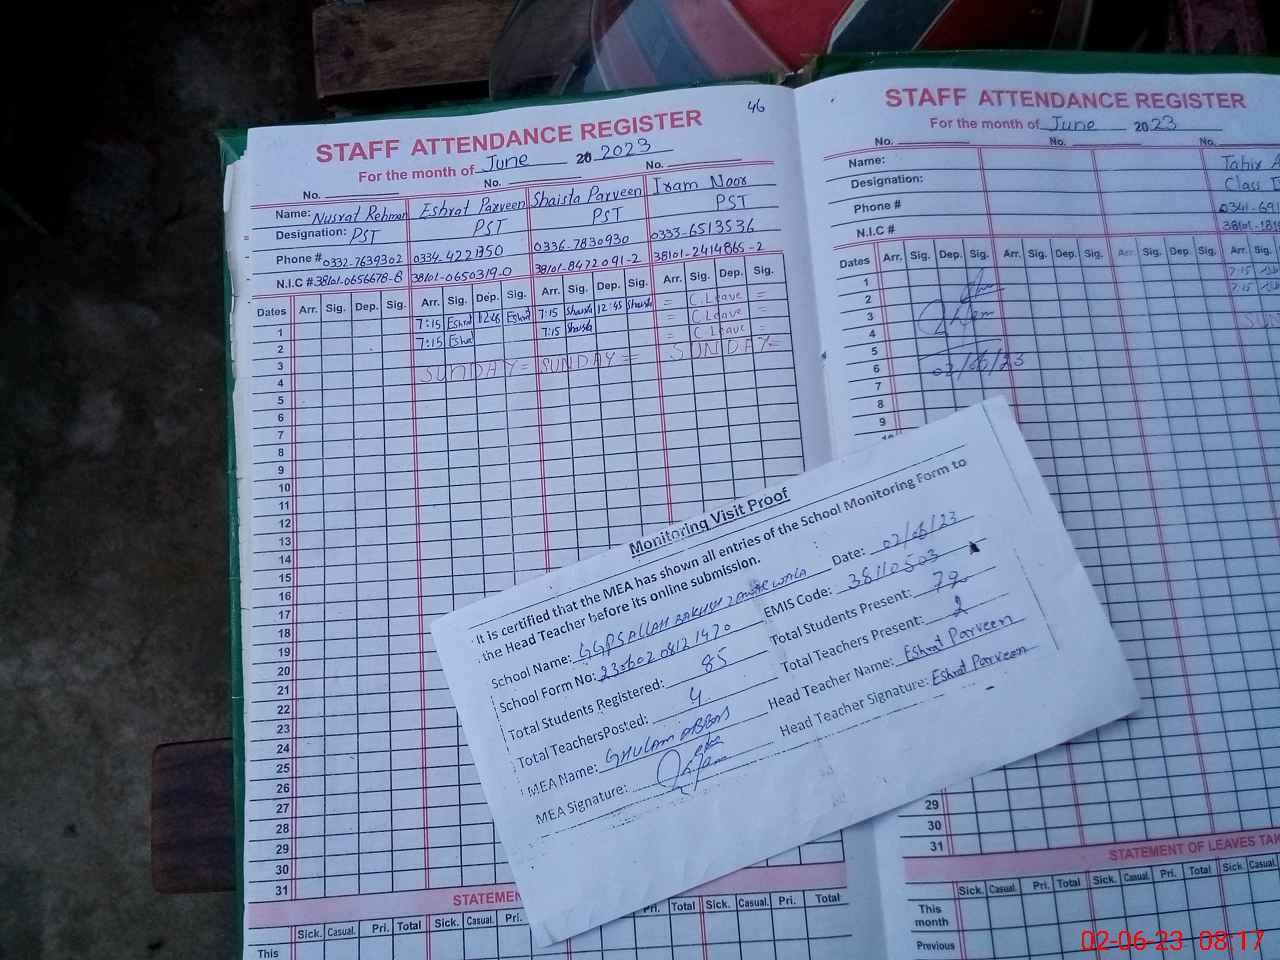 46
STAFF ATTENDANCE REGISTER
For the month of June 20 2023
No. No. No.
Name: Nusrat Rehman Eshrat Parveen Shaista Parveen Iram Noor
Designation: PST PST PST PST
Phone # 0332-7639302 0334-4221350 0336-7830930 0333-6513536
N.I.C # 38101-0656678-8 38101-0650319-0 38101-8472091-2 38101-2414865-2
Dates Arr. Sig. Dep. Sig. Arr. Sig. Dep. Sig. Arr. Sig. Dep. Sig. Arr. Sig. Dep. Sig.
1 7:15 Eshrat 12:45 Eshrat 7:15 Shaista 12:45 Shaista = C.Leave =
2 7:15 Eshrat 7:15 Shaista = C.Leave =
3 = C.Leave =
4 SUNDAY = SUNDAY = SUNDAY =
5
6
7
8
9
10
11
12
13
14
15
16
17
18
19
20
21
22
23
24
25
26
27
28
29
30
31
STATEMEN
Sick. Casual. Pri. Total Sick. Casual. Pri. Pri. Total Sick. Casual. Pri. Total
This
STAFF ATTENDANCE REGISTER
For the month of June 2023
No. No. No.
Name: Tahir A
Designation: Class
Phone # 0341-691
N.I.C #
Dates Arr. Sig. Dep. Sig. Arr. Sig. Dep. Sig. Arr. Sig.
1 7:15
2 7:15
3
4 SUN
5
6 02/06/23
7
8
9
29
30
31
STATEMENT OF LEAVES TAK
Sick. Casual. Pri. Total Sick. Casual. Pri. Total Sick. Casual.
This
month
Previous
Monitoring Visit Proof
It is certified that the MEA has shown all entries of the School Monitoring Form to
the Head Teacher before its online submission.
Date: 02/06/23
School Name: GGPS ALLAH BAKHSH WALA
EMIS Code: 38110503
School Form No: 23060208121470
Total Students Present: 79
Total Students Registered: 85
Total Teachers Present: 2
Total TeachersPosted: 4
Head Teacher Name: Eshrat Parveen
MEA Name: GHULAM ABBAS
Head Teacher Signature: Eshrat Parveen
MEA Signature:
02-06-23 08:17